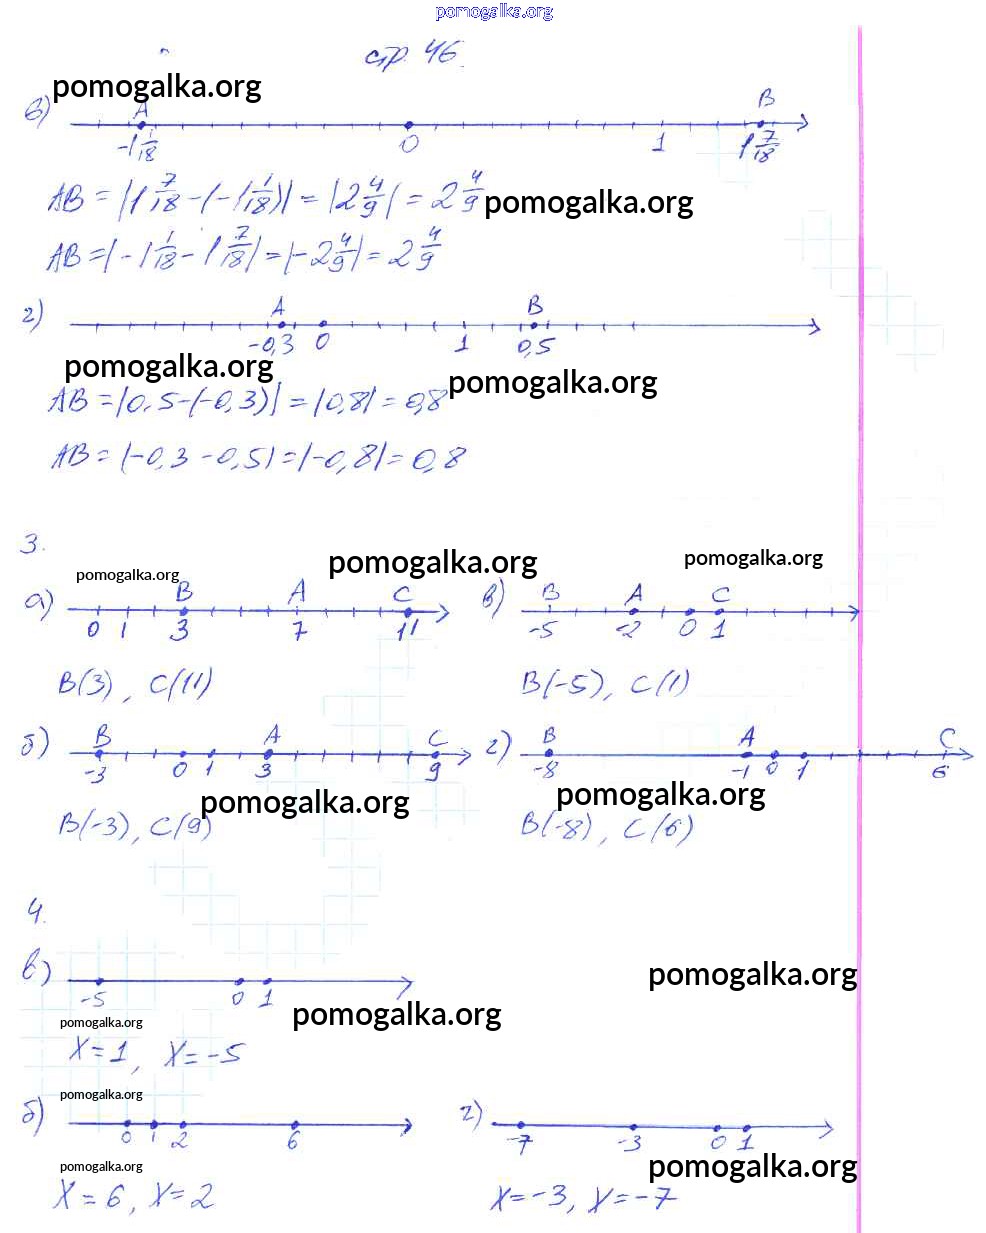 pomogalka.org
стр. 46.
pomogalka.org
в) A B
-1 1/18 0 1 1 7/18
AB = |1 7/18 - (-1 1/18)| = |2 4/9| = 2 4/9 pomogalka.org
AB = |-1 1/18 - 1 7/18| = |-2 4/9| = 2 4/9
г) A B
-0,3 0 1 0,5
pomogalka.org pomogalka.org
AB = |0,5-(-0,3)| = |0,8| = 0,8
AB = |-0,3-0,5| = |-0,8| = 0,8
3.
pomogalka.org pomogalka.org pomogalka.org
а) B A C
0 1 3 7 11
B(3), C(11)
в) B A C
-5 -2 0 1
B(-5), C(1)
б) B A C
-3 0 1 3 9
pomogalka.org
B(-3), C(9)
г) B A C
-8 -1 0 1 6
pomogalka.org
B(-8), C(6)
4.
в)
-5 0 1
pomogalka.org
pomogalka.org pomogalka.org
X=1, X=-5
pomogalka.org
б)
0 1 2 6
pomogalka.org
X=6, X=2
г)
-7 -3 0 1
pomogalka.org
X=-3, X=-7